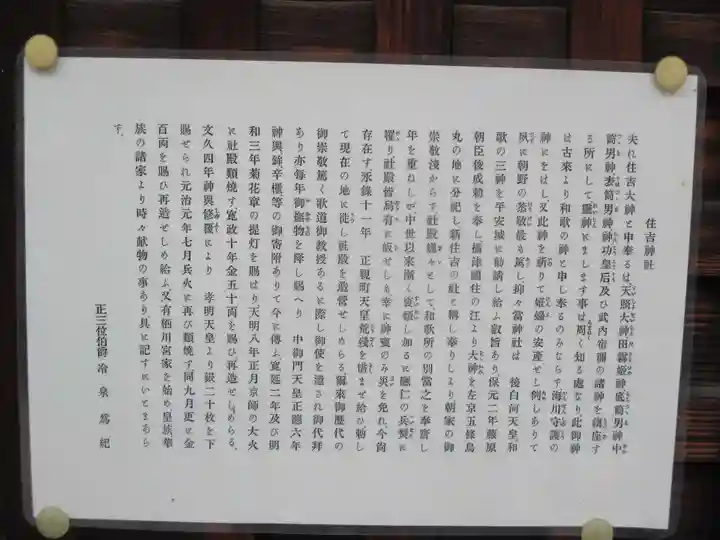 住吉神社
夫れ住吉大神と申奉るは天照大神田霧姫神底筒男神中
筒男神表筒男神神功皇后及ひ武内宿禰の諸神を鎮座す
る所にして霊神にまします事は周く知る處なり此御神
は古來より和歌の神と申し奉るのみならす海川守護の
神にをはし又此神を祈りて姫嬢の安產せし例しありて
夙に朝野の恭敬最も厚し抑々當神社は 後白河天皇和
歌の三神を平安城に勧請し給ふ叡旨あり保元二年藤原
朝臣俊成勅を奉し攝津國住の江より大神を左京五條烏
丸の地に分祀し新住吉の社と稱し奉りしより朝家の御
崇敬淺からす社殿巍々として和歌所の別當之を奉齋し
年を重ねしが中世以來漸く衰頽し加るに應仁の兵燹に
罹り社殿皆烏有に皈せしも幸に神寳のみ災を免れ今尚
存在す永祿十一年 正親町天皇荒殘を惜ませ給ひ勅し
て現在の地に徙し社殿を造營せしめらる爾來御歴代の
御崇敬篤く歌道御教授あるに際し御使を遣され御代拜
あり亦毎年御撫物を降し賜へり 中御門天皇正德六年
神輿鉾辛櫃等の御寄附ありて今に傳ふ寛延二年及ひ明
和三年菊花章の提灯を賜はり天明八年正月京師の大火
に社殿類燒す寛政十年金五十両を賜ひ再造せしめらる
文久四年神輿修覆により 孝明天皇より銀二十枚を下
賜せられ元治元年七月兵火に再び類燒す同九月更に金
百両を賜ひ再造せしめ給ふ又有栖川宮家を始め皇族華
族の諸家より時々献物の事あり具に記すにいとまあら
す
正三位伯爵 冷泉爲紀